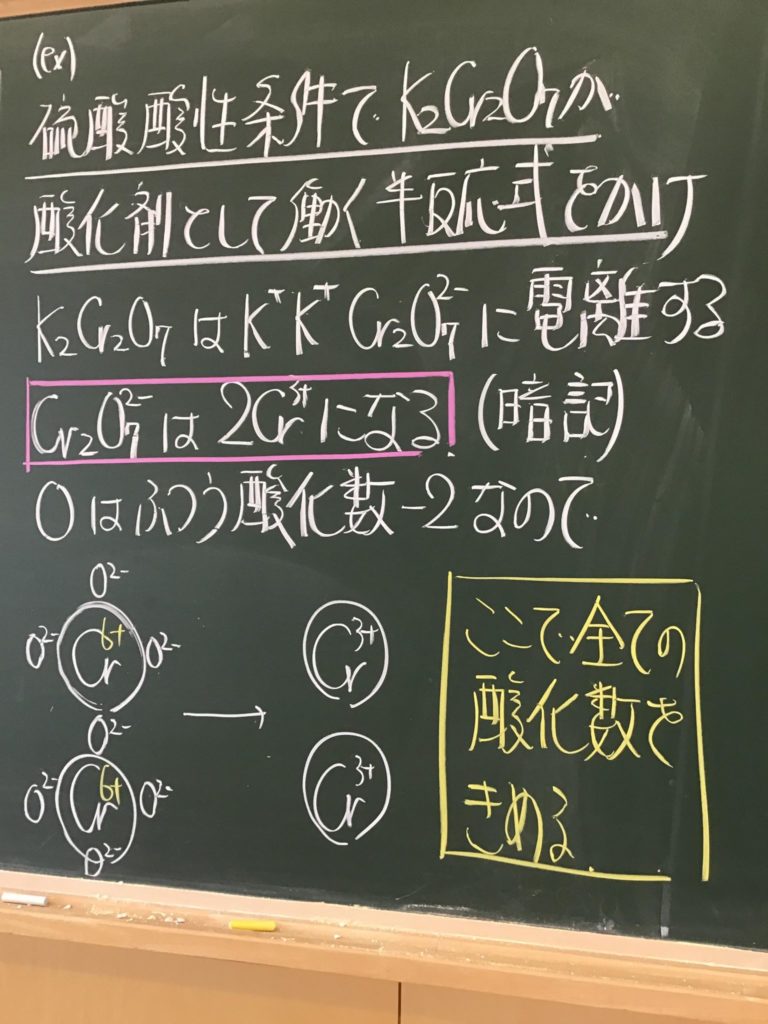 (ex)
硫酸酸性条件で K₂Cr₂O₇が
酸化剤として働く半反応式をかけ
K₂Cr₂O₇は K⁺ K⁺ Cr₂O₇²⁻ に電離する
Cr₂O₇²⁻は 2Cr³⁺になる (暗記)
Oはふつう酸化数-2なので
O²⁻
O²⁻ Cr⁶⁺ O²⁻ → Cr³⁺
O²⁻
O²⁻ Cr⁶⁺ O²⁻ Cr³⁺
O²⁻
ここで全ての
酸化数を
きめる